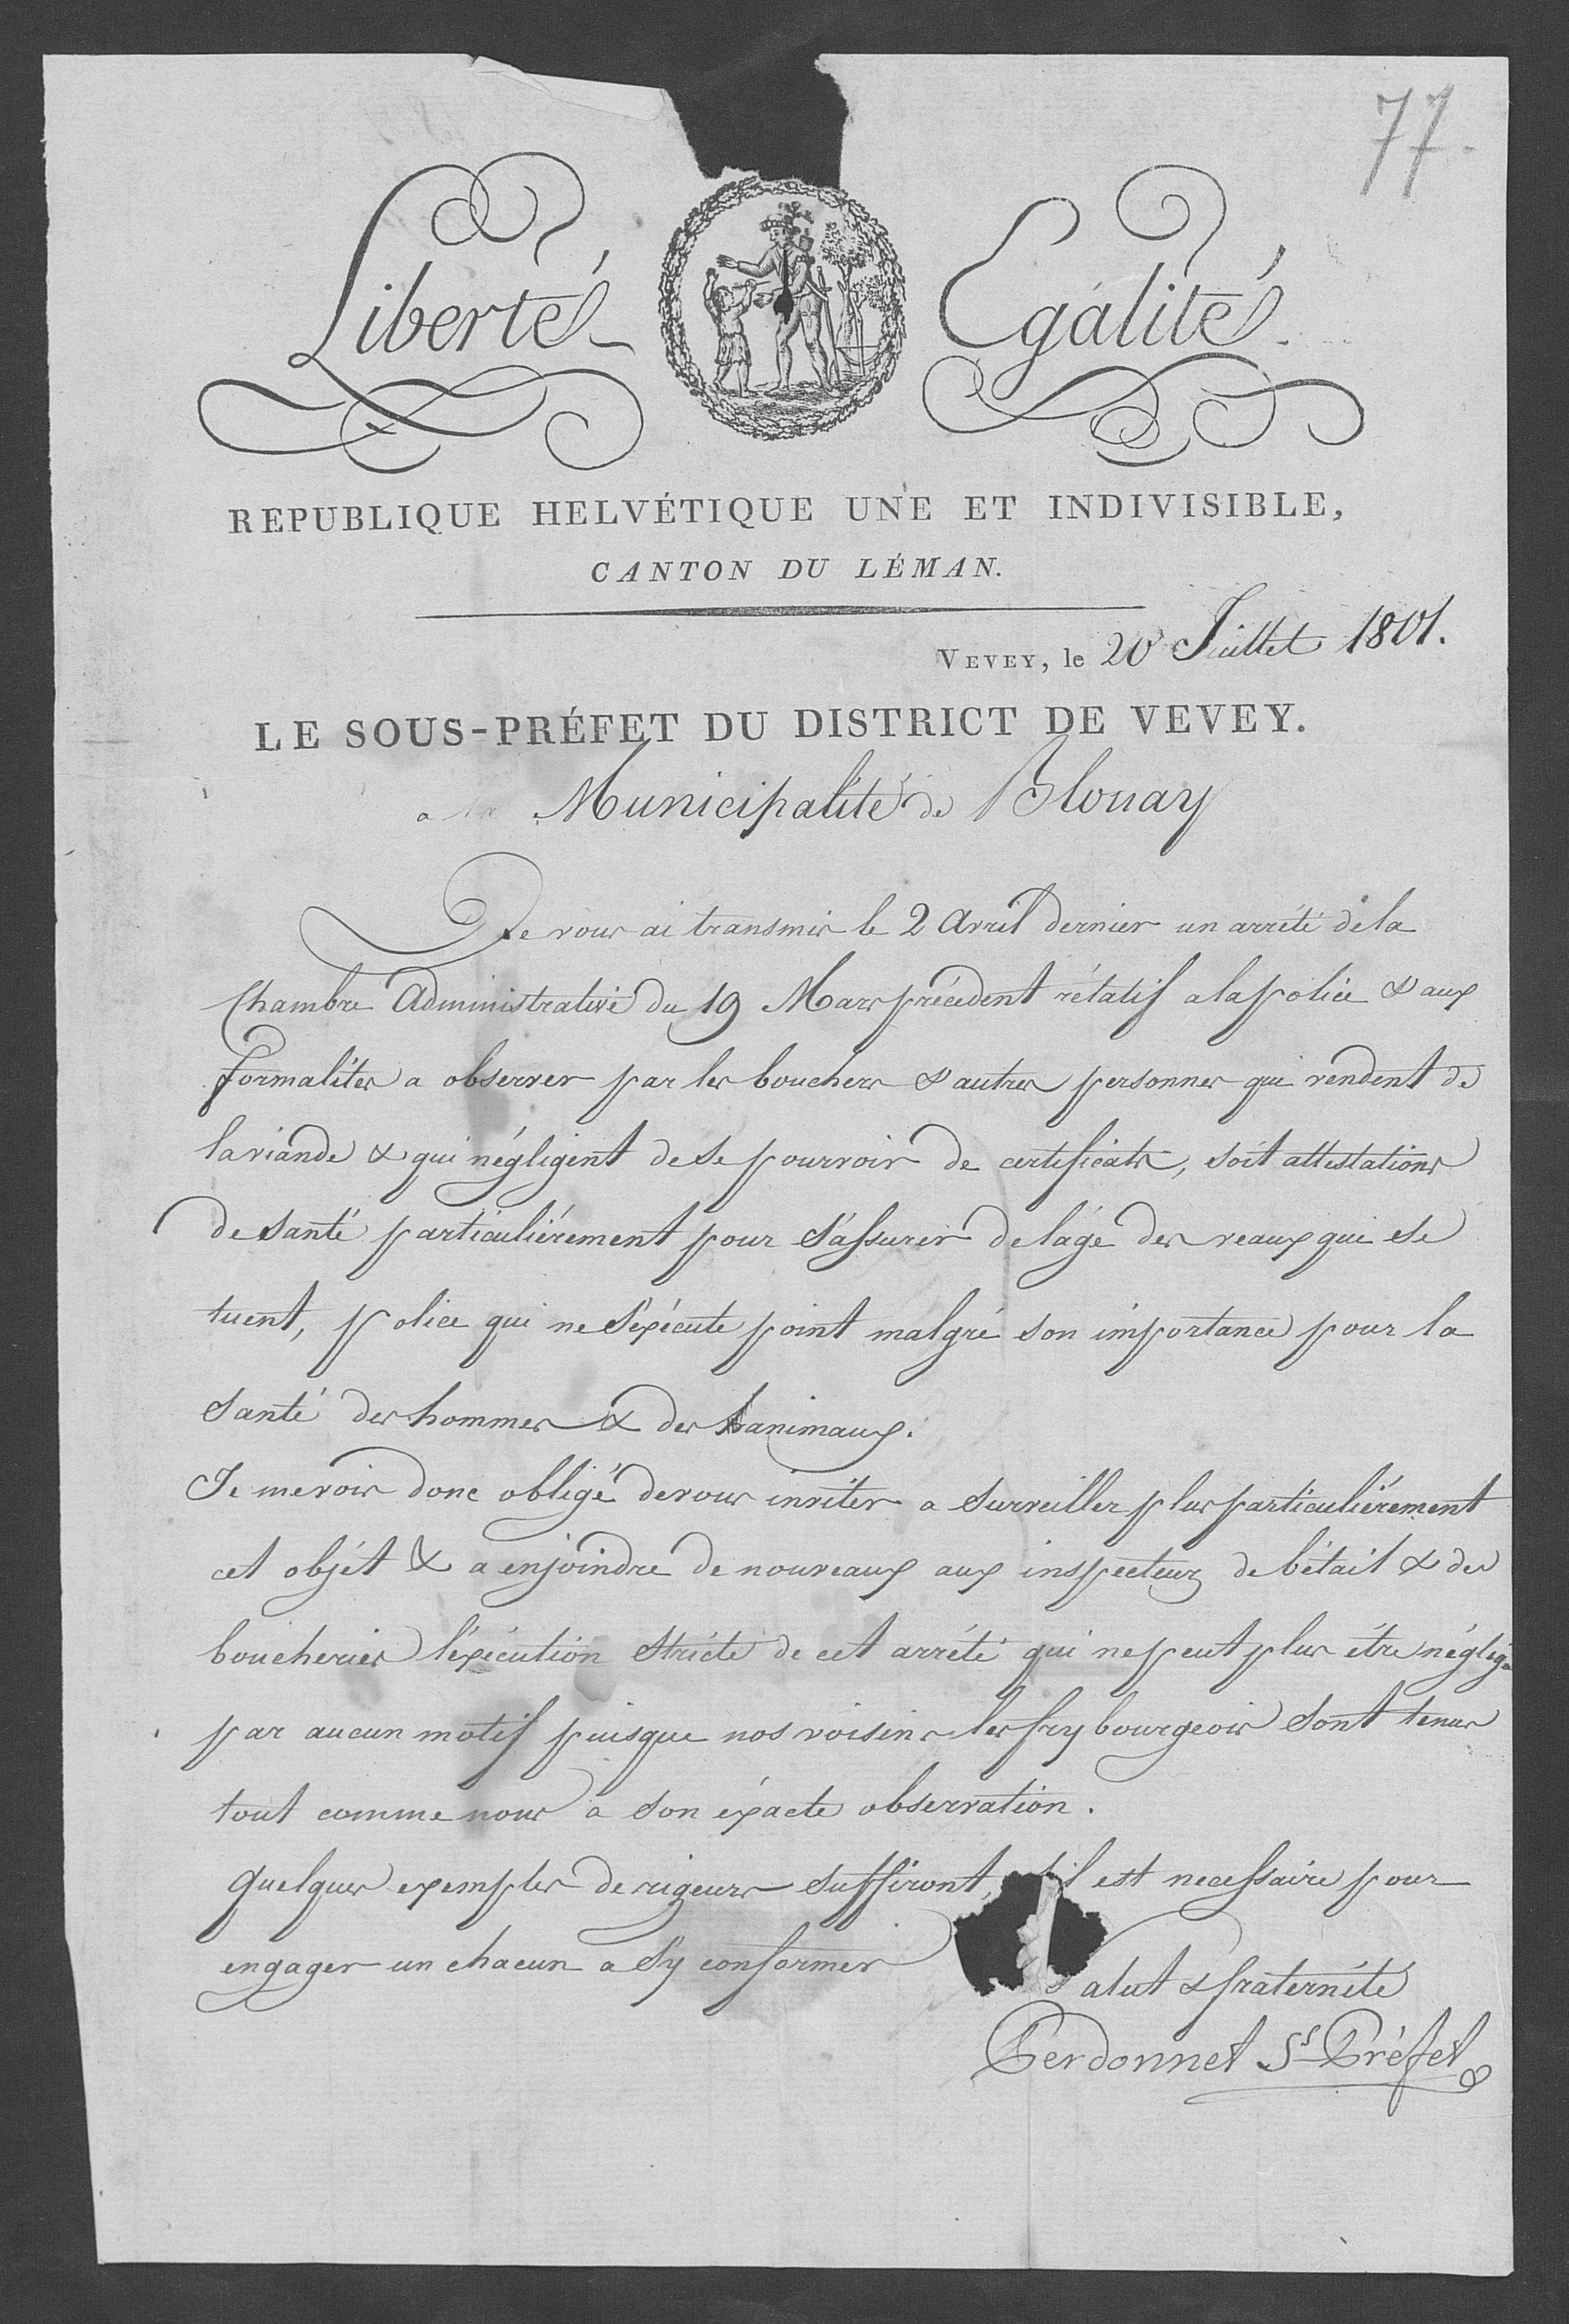 77.
Liberté Egalité.
REPUBLIQUE HELVÉTIQUE UNE ET INDIVISIBLE,
CANTON DU LÉMAN.
VEVEY, le 20 Juillet 1801.
LE SOUS-PRÉFET DU DISTRICT DE VEVEY.
a la Municipalité de Blonay
Je vous ai transmis le 2 Avril dernier un arrêté de la
Chambre Administrative du 19 Mars précédent rélatif a la police & aux
formalités a observer par les bouchers & autres personnes qui vendent de
la viande & qui négligent de se pourvoir de certificats, soit attestations
de santé particuliérement pour s'assurer de lâge des veaux qui se
tuent, police qui ne s'éxécute point malgré son importance pour la
santé des hommes & des animaux.
Je me vois donc obligé de vous inviter a surveiller plus particuliérement
cet objét & a enjoindre de nouveaux aux inspecteurs de bétail & des
boucheries l'éxécution stricte de cet arrêté qui ne peut plus être négligé
par aucun motif puisque nos voisins les frybourgeois sont tenus
tout comme nous a son éxacte observation.
Quelques exemples de rigeurs suffiront, s'il est necessaire pour
engager un chacun a s'y conformer
Salut & fraternité
Perdonnet Ss Préfet